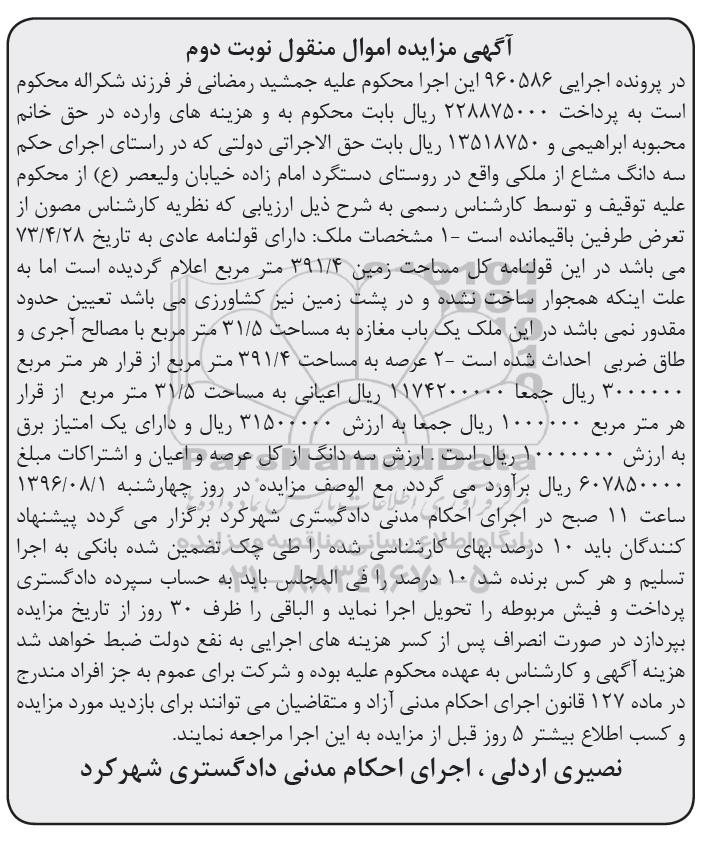 آگهی مزایده اموال منقول نوبت دوم
در پرونده اجرایی ۹۶۰۵۸۶ این اجرا محکوم علیه جمشید رمضانی فر فرزند شکراله محکوم
است به پرداخت ۲۲۸۸۷۵۰۰۰ ریال بابت محکوم به و هزینه های وارده در حق خانم
محبوبه ابراهیمی و ۱۳۵۱۸۷۵۰ ریال بابت حق الاجراتی دولتی که در راستای اجرای حکم
سه دانگ مشاع از ملکی واقع در روستای دستگرد امام زاده خیابان ولیعصر (ع) از محکوم
علیه توقیف و توسط کارشناس رسمی به شرح ذیل ارزیابی که نظریه کارشناس مصون از
تعرض طرفین باقیمانده است -۱ مشخصات ملک: دارای قولنامه عادی به تاریخ ۷۳/۴/۲۸
می باشد در این قولنامه کل مساحت زمین ۳۹۱/۴ متر مربع اعلام گردیده است اما به
علت اینکه همجوار ساخت نشده و در پشت زمین نیز کشاورزی می باشد تعیین حدود
مقدور نمی باشد در این ملک یک باب مغازه به مساحت ۳۱/۵ متر مربع با مصالح آجری و
طاق ضربی احداث شده است -۲ عرصه به مساحت ۳۹۱/۴ متر مربع از قرار هر متر مربع
۳۰۰۰۰۰۰ ریال جمعا ۱۱۷۴۲۰۰۰۰۰ ریال اعیانی به مساحت ۳۱/۵ متر مربع از قرار
هر متر مربع ۱۰۰۰۰۰۰ ریال جمعا به ارزش ۳۱۵۰۰۰۰۰ ریال و دارای یک امتیاز برق
به ارزش ۱۰۰۰۰۰۰۰ ریال است . ارزش سه دانگ از کل عرصه و اعیان و اشتراکات مبلغ
۶۰۷۸۵۰۰۰۰ ریال برآورد می گردد. مع الوصف مزایده در روز چهارشنبه ۱۳۹۶/۰۸/۱
ساعت ۱۱ صبح در اجرای احکام مدنی دادگستری شهرکرد برگزار می گردد پیشنهاد
کنندگان باید ۱۰ درصد بهای کارشناسی شده را طی چک تضمین شده بانکی به اجرا
تسلیم و هر کس برنده شد ۱۰ درصد را فی المجلس باید به حساب سپرده دادگستری
پرداخت و فیش مربوطه را تحویل اجرا نماید و الباقی را ظرف ۳۰ روز از تاریخ مزایده
بپردازد در صورت انصراف پس از کسر هزینه های اجرایی به نفع دولت ضبط خواهد شد
هزینه آگهی و کارشناس به عهده محکوم علیه بوده و شرکت برای عموم به جز افراد مندرج
در ماده ۱۲۷ قانون اجرای احکام مدنی آزاد و متقاضیان می توانند برای بازدید مورد مزایده
و کسب اطلاع بیشتر ۵ روز قبل از مزایده به این اجرا مراجعه نمایند.
نصیری اردلی ، اجرای احکام مدنی دادگستری شهرکرد
ParsNamadData
پایگاه اطلاع رسانی مناقصه و مزایده
۰۲۱-۸۸۳۴۹۶۷۰-۵